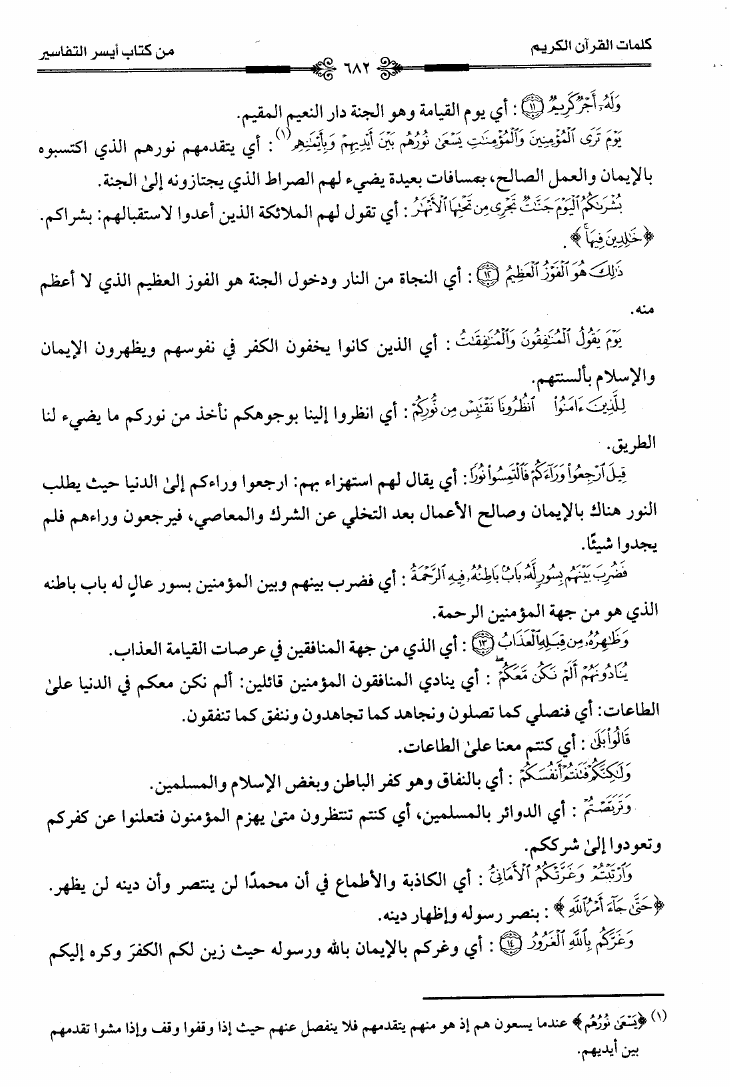 كلمات القرآن الكريم ٦٨٢ من كتاب أيسر التفاسير
وَلَهُۥٓ أَجْرٌ كَرِيمٌ ١١ : أي يوم القيامة وهو الجنة دار النعيم المقيم.
يَوْمَ تَرَى ٱلْمُؤْمِنِينَ وَٱلْمُؤْمِنَٰتِ يَسْعَىٰ نُورُهُم بَيْنَ أَيْدِيهِمْ وَبِأَيْمَٰنِهِم (١) : أي يتقدمهم نورهم الذي اكتسبوه
بالإيمان والعمل الصالح، بمسافات بعيدة يضيء لهم الصراط الذي يجتازونه إلىٰ الجنة.
بُشْرَىٰكُمُ ٱلْيَوْمَ جَنَّٰتٌ تَجْرِى مِن تَحْتِهَا ٱلْأَنْهَٰرُ : أي تقول لهم الملائكة الذين أعدوا لاستقبالهم: بشراكم.
﴿خَٰلِدِينَ فِيهَا ۚ﴾ .
ذَٰلِكَ هُوَ ٱلْفَوْزُ ٱلْعَظِيمُ ١٢ : أي النجاة من النار ودخول الجنة هو الفوز العظيم الذي لا أعظم
منه.
يَوْمَ يَقُولُ ٱلْمُنَٰفِقُونَ وَٱلْمُنَٰفِقَٰتُ : أي الذين كانوا يخفون الكفر في نفوسهم ويظهرون الإيمان
والإسلام بألسنتهم.
لِلَّذِينَ ءَامَنُوا۟ ٱنظُرُونَا نَقْتَبِسْ مِن نُّورِكُمْ : أي انظروا إلينا بوجوهكم نأخذ من نوركم ما يضيء لنا
الطريق.
قِيلَ ٱرْجِعُوا۟ وَرَآءَكُمْ فَٱلْتَمِسُوا۟ نُورًا : أي يقال لهم استهزاء بهم: ارجعوا وراءكم إلىٰ الدنيا حيث يطلب
النور هناك بالإيمان وصالح الأعمال بعد التخلي عن الشرك والمعاصي، فيرجعون وراءهم فلم
يجدوا شيئًا.
فَضُرِبَ بَيْنَهُم بِسُورٍ لَّهُۥ بَابٌۢ بَاطِنُهُۥ فِيهِ ٱلرَّحْمَةُ : أي فضرب بينهم وبين المؤمنين بسور عالٍ له باب باطنه
الذي هو من جهة المؤمنين الرحمة.
وَظَٰهِرُهُۥ مِن قِبَلِهِ ٱلْعَذَابُ ١٣ : أي الذي من جهة المنافقين في عرصات القيامة العذاب.
يُنَادُونَهُمْ أَلَمْ نَكُن مَّعَكُمْ ۖ : أي ينادي المنافقون المؤمنين قائلين: ألم نكن معكم في الدنيا علىٰ
الطاعات: أي فنصلي كما تصلون ونجاهد كما تجاهدون وننفق كما تنفقون.
قَالُوا۟ بَلَىٰ : أي كنتم معنا علىٰ الطاعات.
وَلَٰكِنَّكُمْ فَتَنتُمْ أَنفُسَكُمْ : أي بالنفاق وهو كفر الباطن وبغض الإسلام والمسلمين.
وَتَرَبَّصْتُمْ : أي الدوائر بالمسلمين، أي كنتم تنتظرون متىٰ يهزم المؤمنون فتعلنوا عن كفركم
وتعودوا إلىٰ شرككم.
وَٱرْتَبْتُمْ وَغَرَّتْكُمُ ٱلْأَمَانِىُّ : أي الكاذبة والأطماع في أن محمدًا لن ينتصر وأن دينه لن يظهر.
﴿حَتَّىٰ جَآءَ أَمْرُ ٱللَّهِ﴾ : بنصر رسوله وإظهار دينه.
وَغَرَّكُم بِٱللَّهِ ٱلْغَرُورُ ١٤ : أي وغركم بالإيمان بالله ورسوله حيث زين لكم الكفرَ وكره إليكم
(١) ﴿يَسْعَىٰ نُورُهُم﴾ عندما يسعون هم إذ هو منهم يتقدمهم فلا ينفصل عنهم حيث إذا وقفوا وقف وإذا مشوا تقدمهم
بين أيديهم.